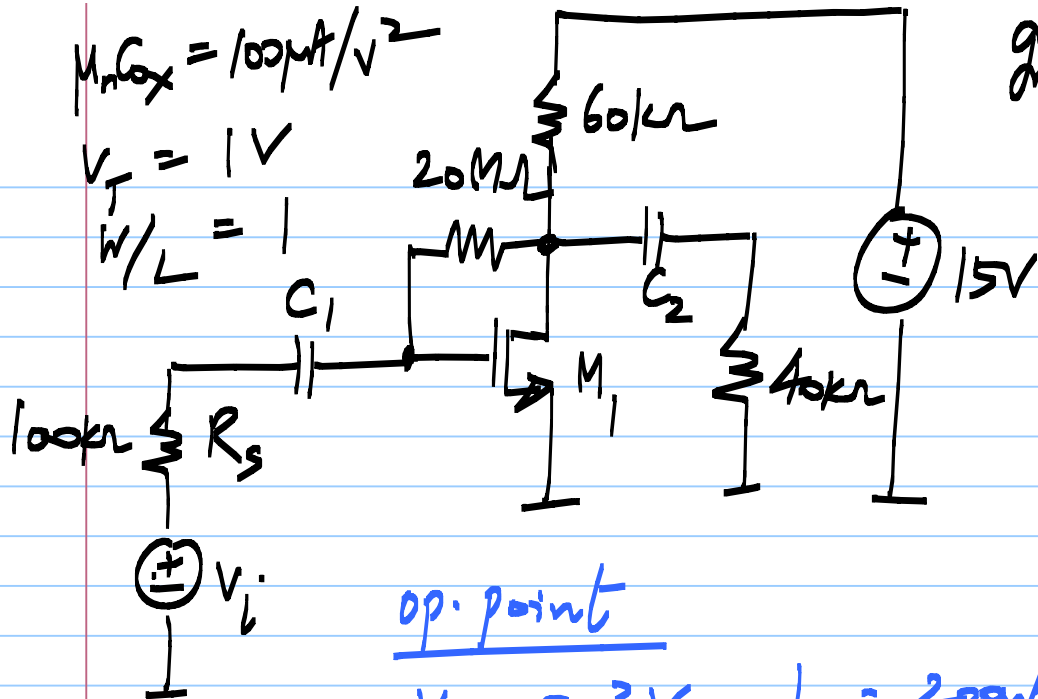 μnCox = 100μA/V²
VT = 1V
W/L = 1
60kΩ
20MΩ
C1
C2
15V
M1
40kΩ
100kΩ
Rs
Vi
op. point